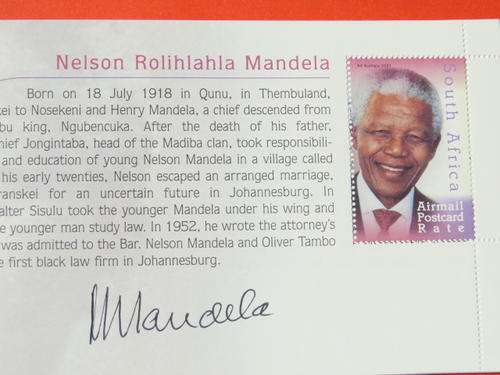 Nelson Rolihlahla Mandela
Born on 18 July 1918 in Qunu, in Thembuland,
kei to Nosekeni and Henry Mandela, a chief descended from
bu king, Ngubencuka. After the death of his father,
hief Jongintaba, head of the Madiba clan, took responsibili-
and education of young Nelson Mandela in a village called
his early twenties, Nelson escaped an arranged marriage,
ranskei for an uncertain future in Johannesburg. In
alter Sisulu took the younger Mandela under his wing and
e younger man study law. In 1952, he wrote the attorney's
was admitted to the Bar. Nelson Mandela and Oliver Tambo
e first black law firm in Johannesburg.
NMandela
South Africa
Airmail
Postcard
Rate